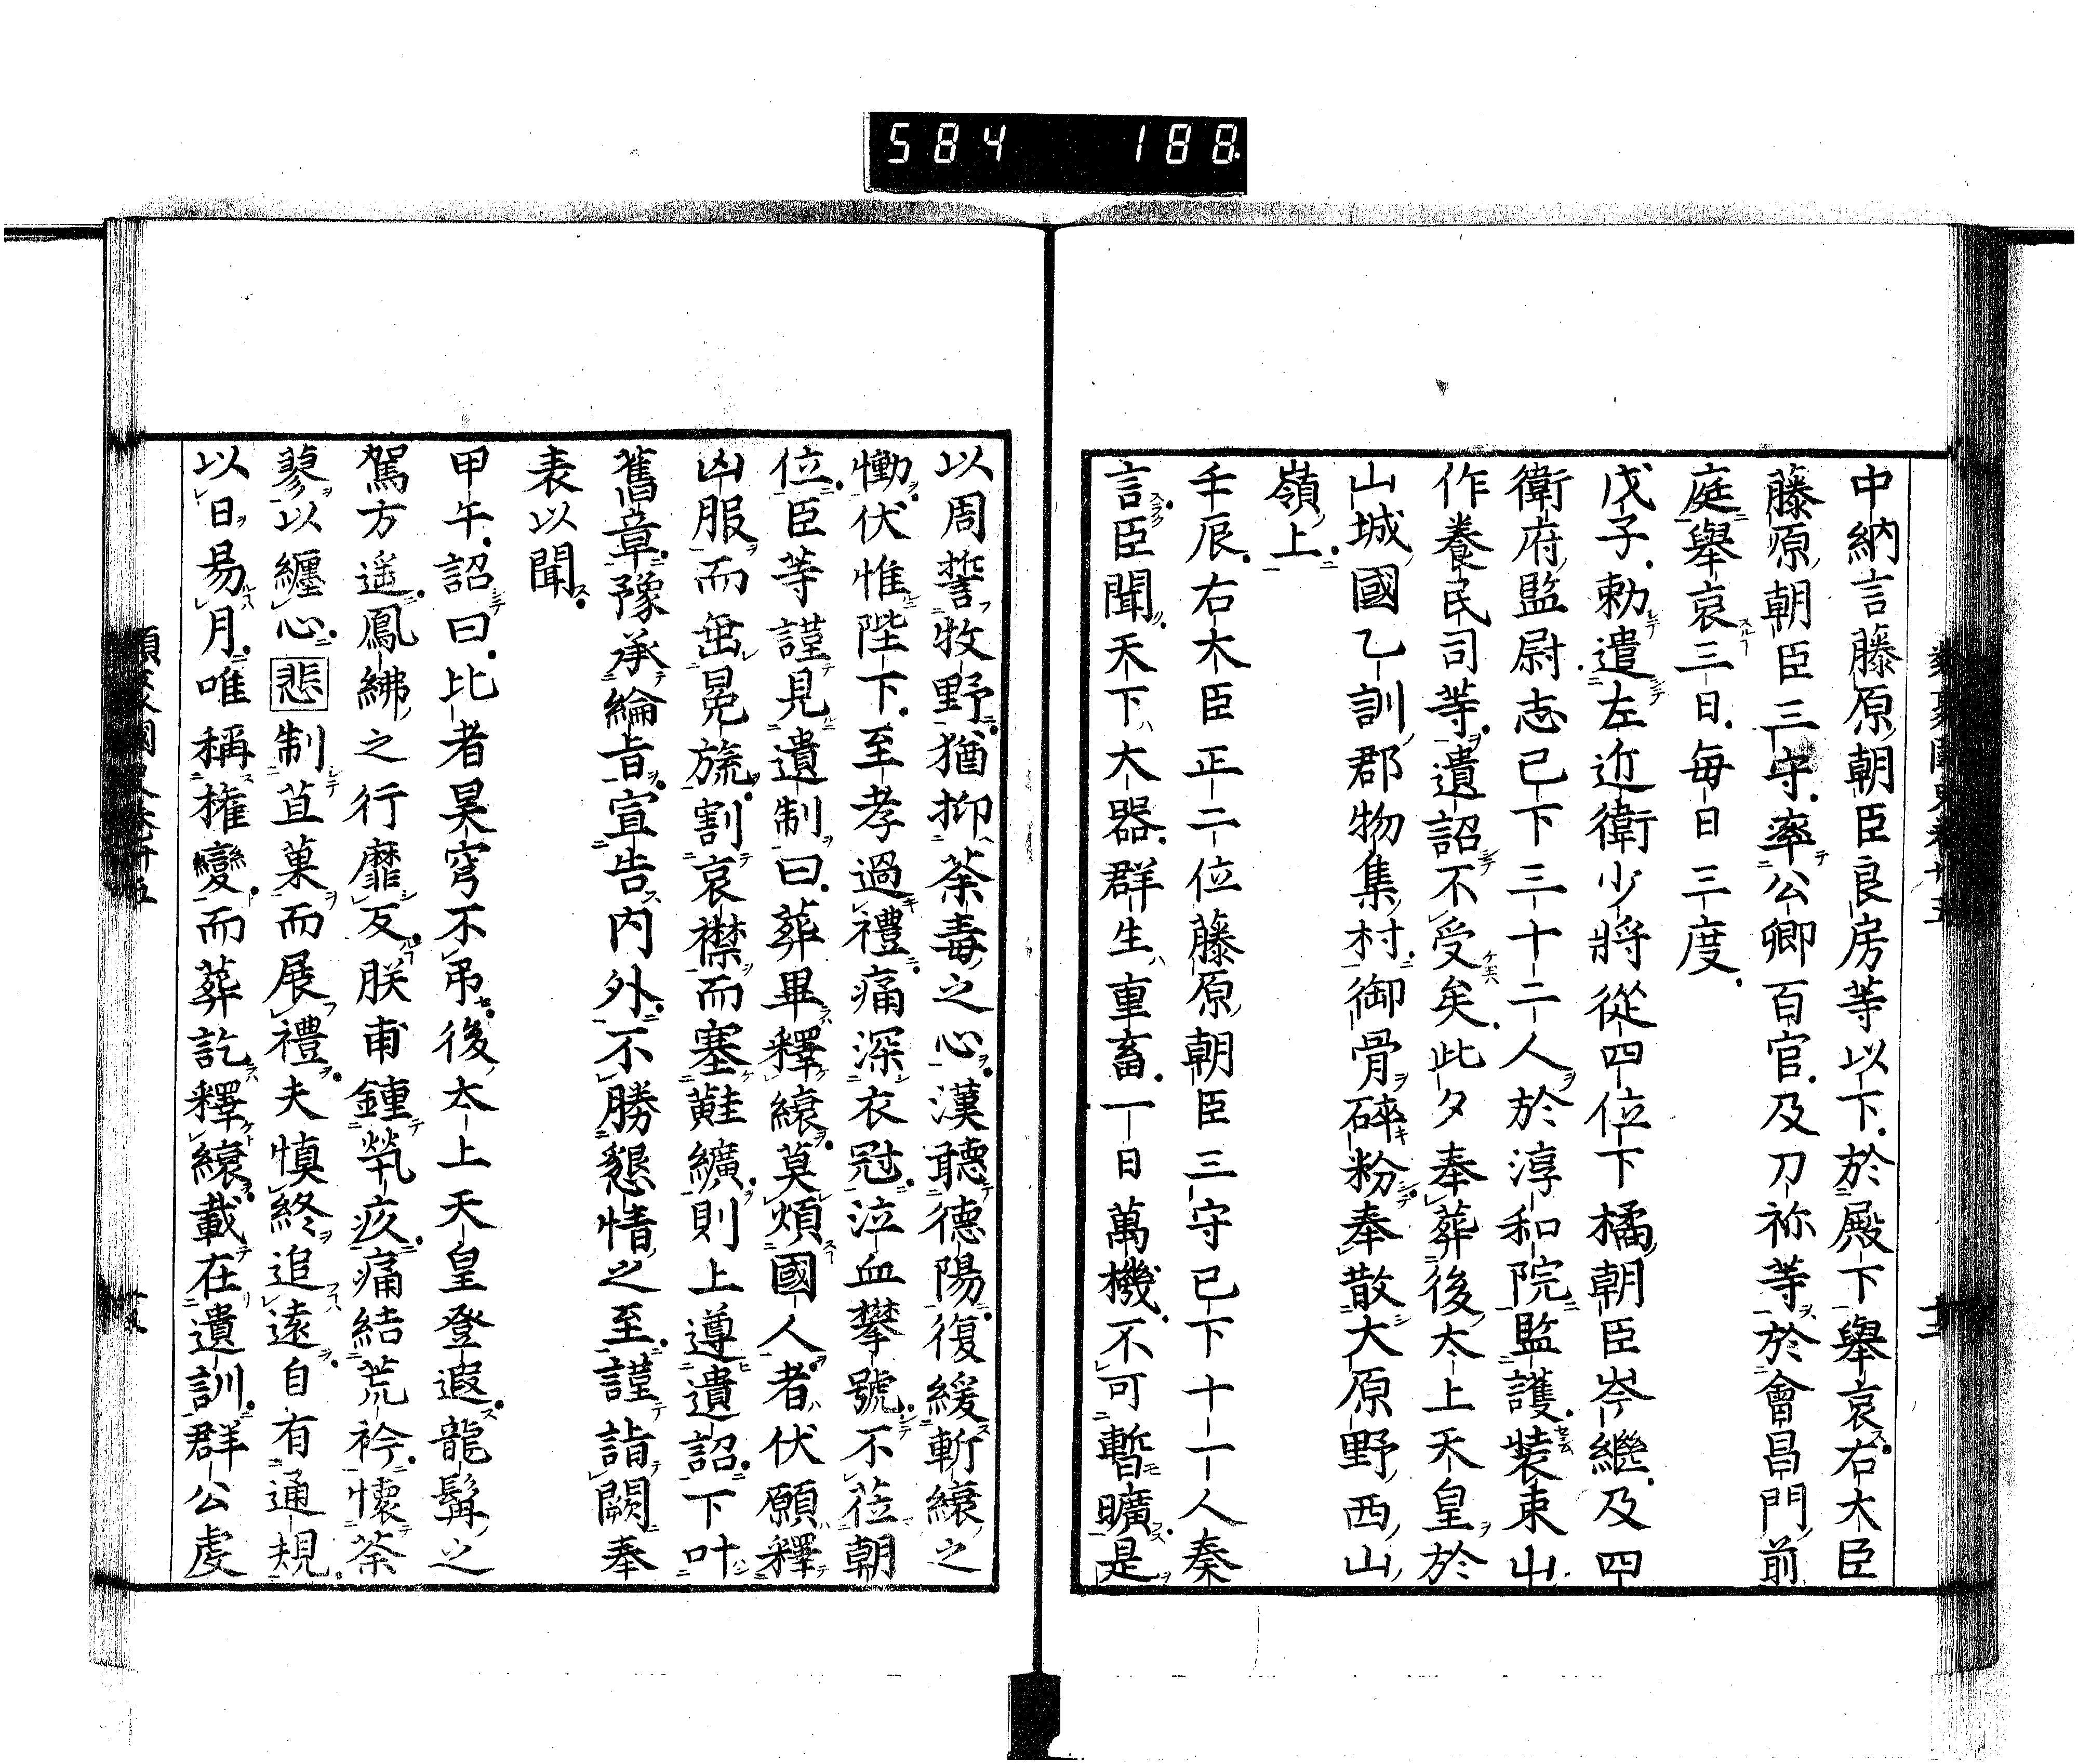 584 188
中納言藤原朝臣良房等以下於殿下擧哀右大臣
藤原朝臣三守率公卿百官及刀祢等於會昌門前
庭擧哀三日每日三度
戊子勅遣左近衛少將從四位下橘朝臣岑繼及四
衛府監尉志已下三十二人於淳和院監護裝束山
作養民司等遺詔不受矣此夕奉葬後太上天皇於
山城國乙訓郡物集村御骨碎粉奉散大原野西山
嶺上
壬辰右大臣正二位藤原朝臣三守已下十一人奏
言臣聞天下大器群生重畜一日萬機不可暫曠是
以周誓牧野猶抑荼毒之心漢聽德陽復緩斬縗之
慟伏惟陛下至孝過禮痛深衣冠泣血攀號不莅朝
位臣等謹見遺制曰葬畢釋縗莫煩國人者伏願釋
凶服而垂冕旒割哀襟而塞黈纊則上遵遺詔下叶
舊章豫承綸旨宣告內外不勝懇情之至謹詣闕奉
表以聞
甲午詔曰比者昊穹不弔後太上天皇登遐龍髯之
駕方遥鳳綍之行靡反朕甫鍾煢疚痛結荒衿懷荼
蓼以纏心悲制苴菓而展禮夫愼終追遠自有通規
以日易月唯稱權變而葬訖釋縗載在遺訓群公虔